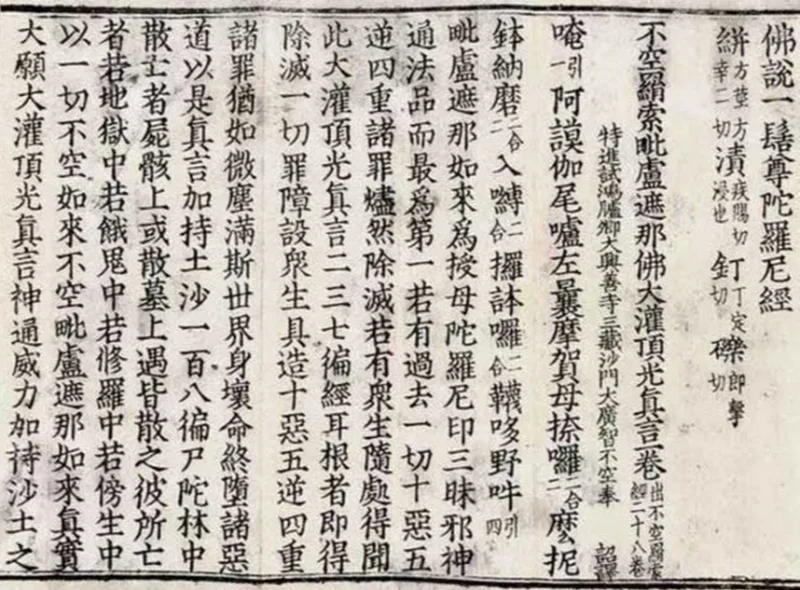 佛說一髻尊陀羅尼經
絣方莖方幸二切漬疾賜切浸也釘丁定切礫郎擊切
不空羂索毗盧遮那佛大灌頂光真言一卷出不空羂索經二十八卷
特進試鴻臚卿大興善寺三藏沙門大廣智不空奉 詔譯
唵引一阿謨伽尾嚧左曩摩賀母捺囉二合二麽抳
鉢納磨二合入嚩二合攞鉢囉二合韈哆野吽引四
毗盧遮那如來為授母陀羅尼印三昧邪神
通法品而最為第一若有過去一切十惡五
逆四重諸罪燼然除滅若有眾生隨處得聞
此大灌頂光真言二三七徧經耳根者即得
除滅一切罪障設眾生具造十惡五逆四重
諸罪猶如微塵滿斯世界身壞命終墮諸惡
道以是真言加持土沙一百八徧尸陀林中
散亡者屍骸上或散墓上遇皆散之彼所亡
者若地獄中若餓鬼中若修羅中若傍生中
以一切不空如來不空毗盧遮那如來真實
大願大灌頂光真言神通威力加持沙土之